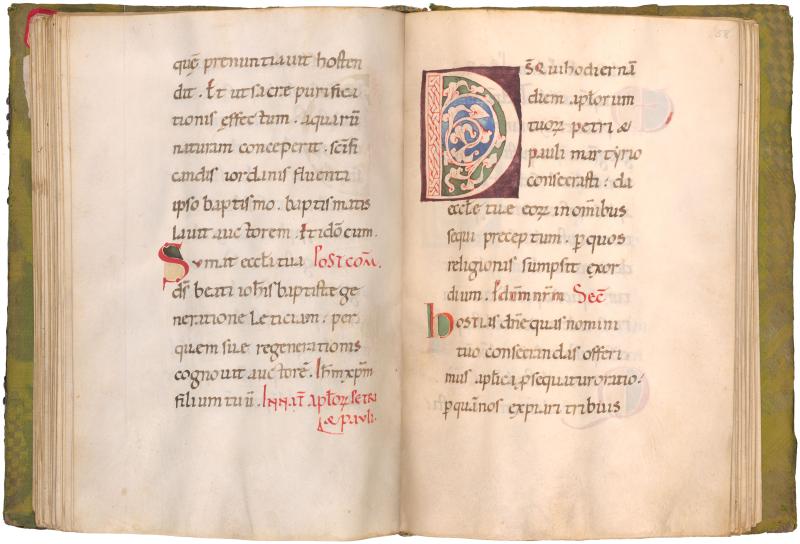 quę prenuntiauit hosten
dit. Et ut sacre purifica
tionis effectum. aquarū
naturam conceperit. sc̄ifi
candis iordanis fluenta
ipso baptismo. baptismatis
lauit auctorem. Et idō cum.
Sumat eccl̄a tua Post com̄.
d̄s beati ioh̄is baptistę ge
neratione leticiam. per
quem suę regenerationis
cognouit auctorē. ih̄m xp̄m
filium tuū. In nat̄ ap̄lor̄ Petri
& Pauli.
D s̄ qui hodiernā
diem ap̄lorum
tuor̄ petri &
pauli martyrio
consecrasti: da
eccl̄e tuę eor̄ in omībus
sequi preceptum. p̄ quos
religionis sumpsit exor
dium. p̄ dn̄m nr̄m Sec̄
hostias dn̄e quas nomini
tuo consecrandas offeri
mus ap̄lica p̄sequatur oratio:
p̄ quā nos expiari tribuas